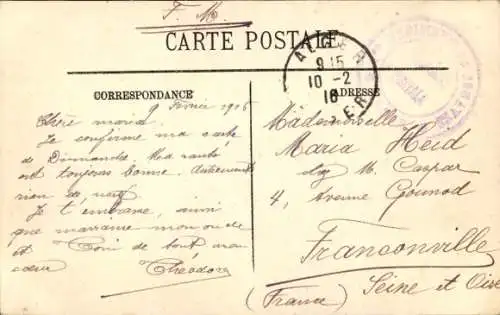 F. M.
CARTE POSTALE
CORRESPONDANCE
ADRESSE
ALGER
9 15
10 -2
16
9 Février 1916
Chère Maria
Je confirme ma carte
de Dimanche. Ma santé
est toujours bonne. Autrement
rien de neuf
Je t'embrasse, ainsi
que marraine mon oncle
et Toni de tout mon
cœur
Théodore
Mademoiselle
Maria Heid
chez M. Caspar
4, Avenue Gounod
Franconville
Seine et Oise
(France)